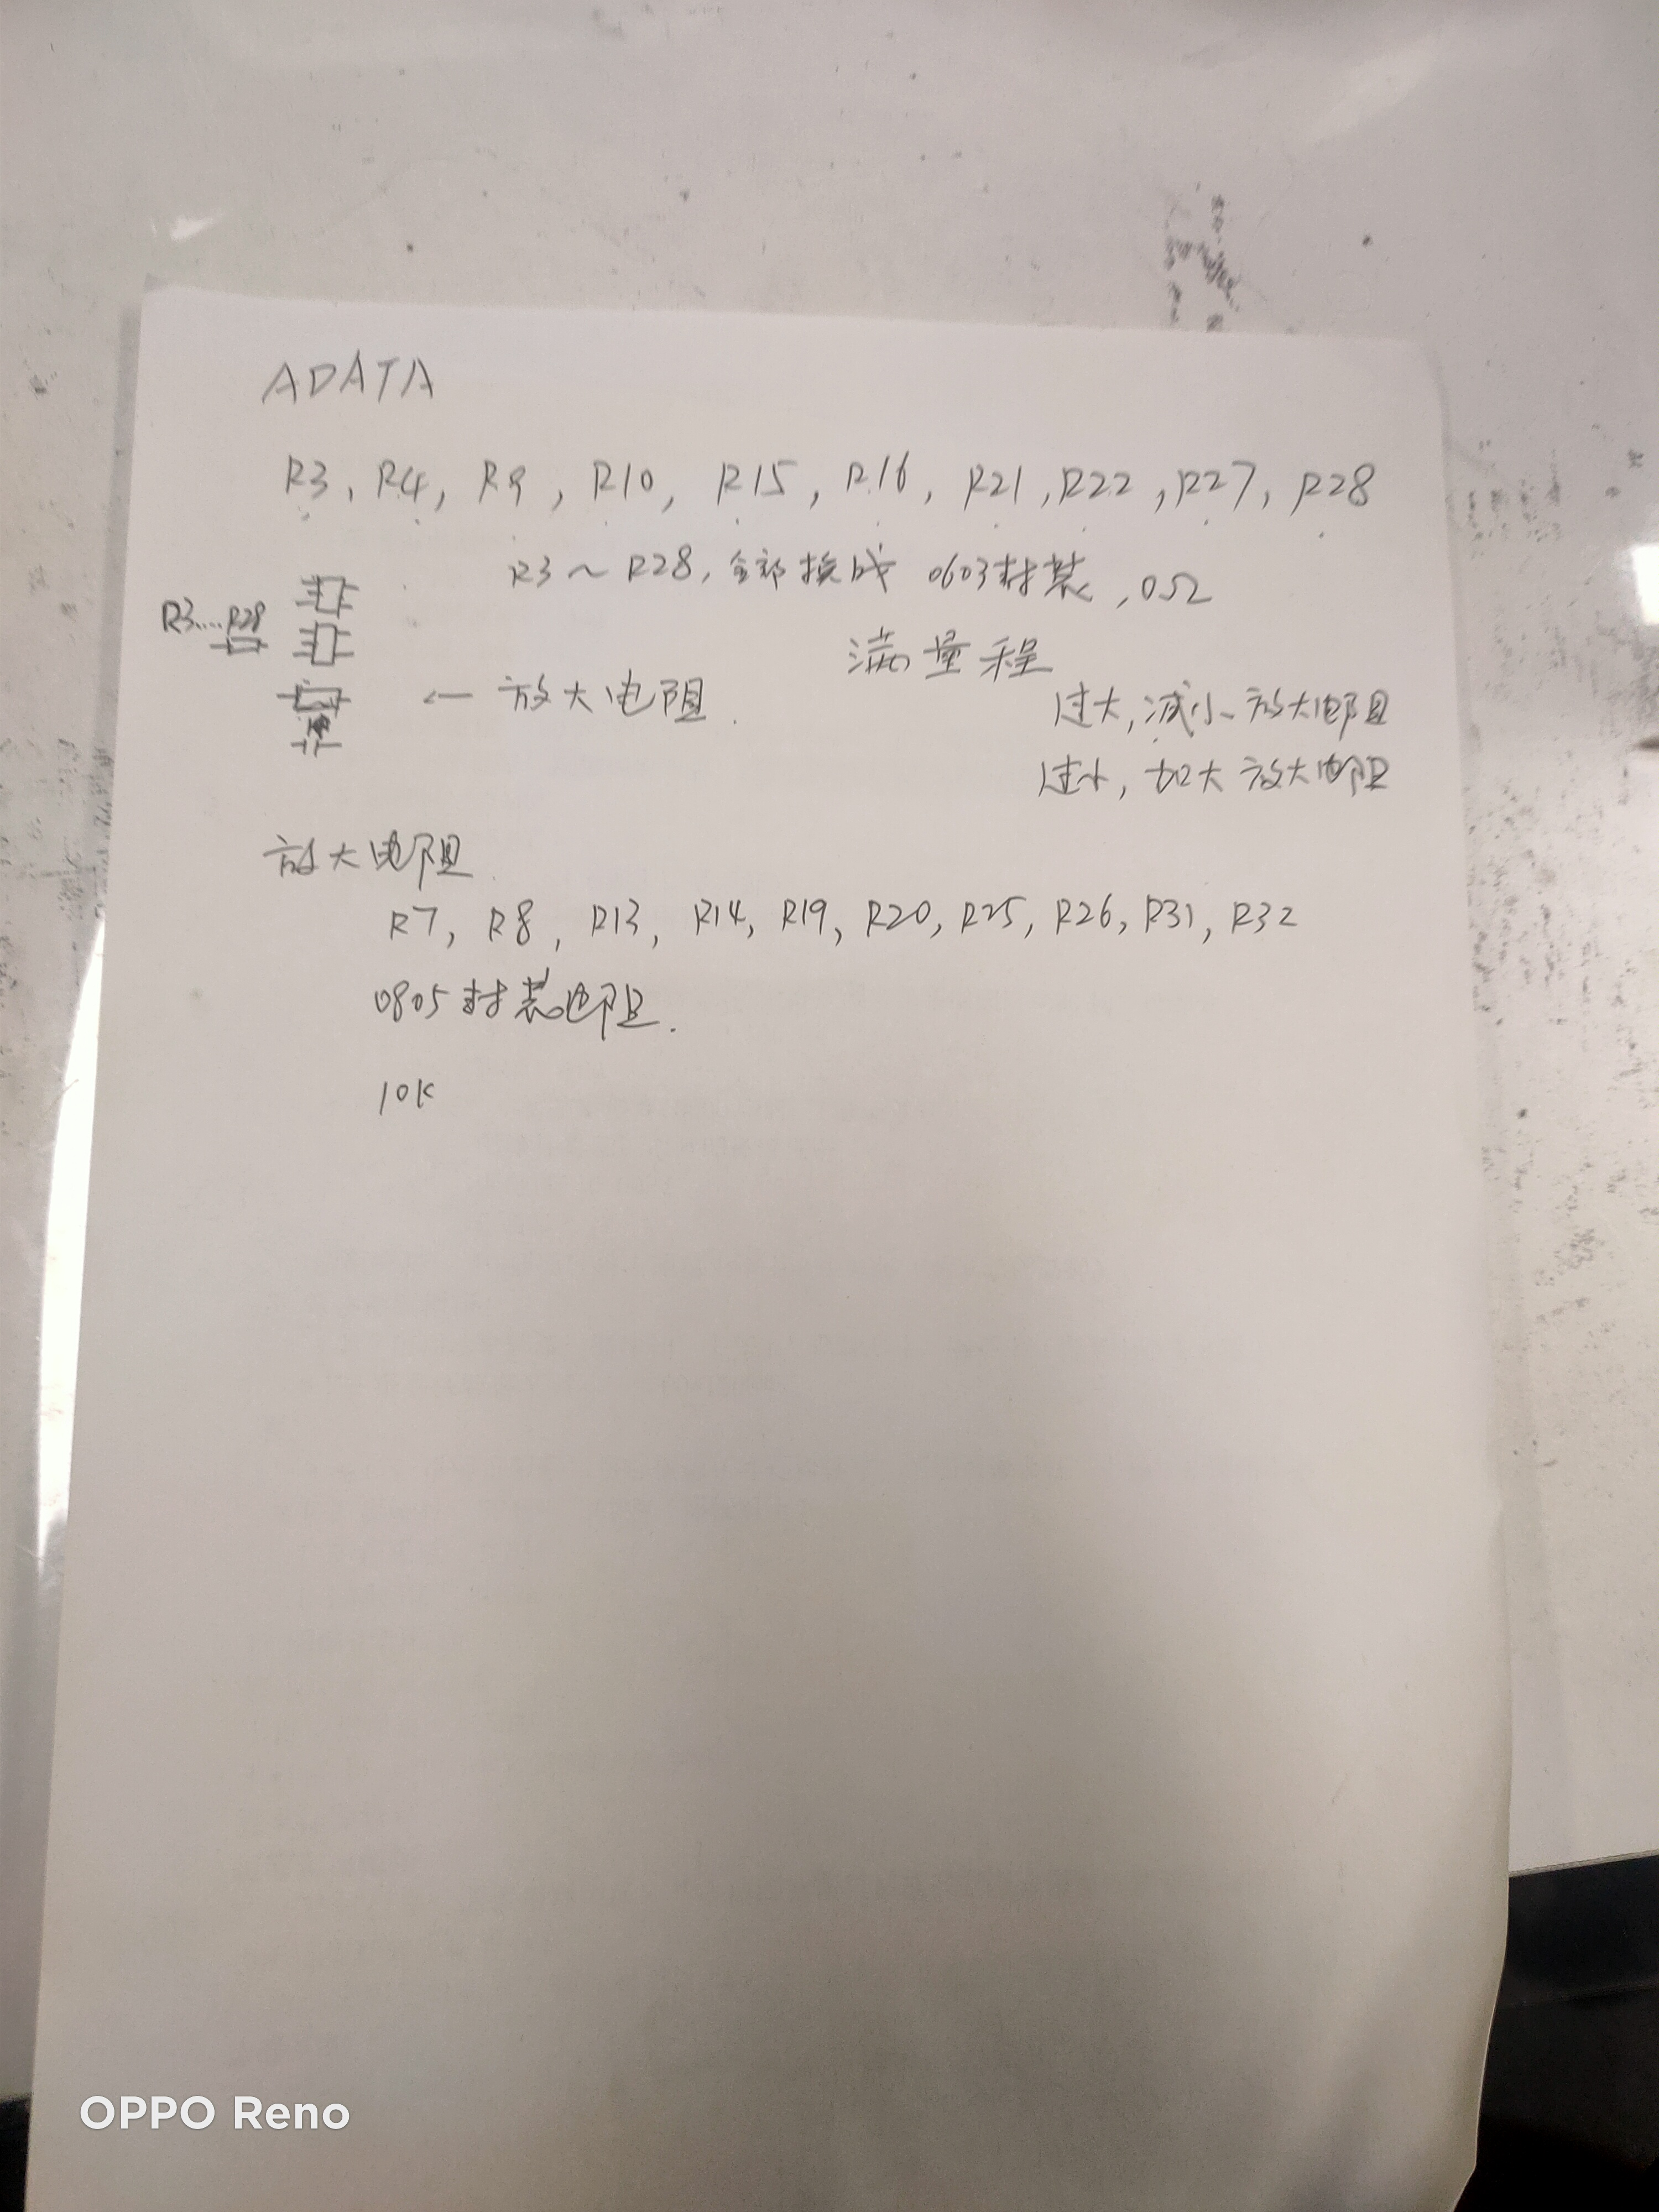 ADATA
R3, R4, R9, R10, R15, R16, R21, R22, R27, R28
R3~R28, 全部换成 0603封装, 0Ω
R3....R28
满量程
← 放大电阻.
过大, 减小放大电阻
过小, 加大放大电阻
放大电阻
R7, R8, R13, R14, R19, R20, R25, R26, R31, R32
0805封装电阻.
10K
OPPO Reno